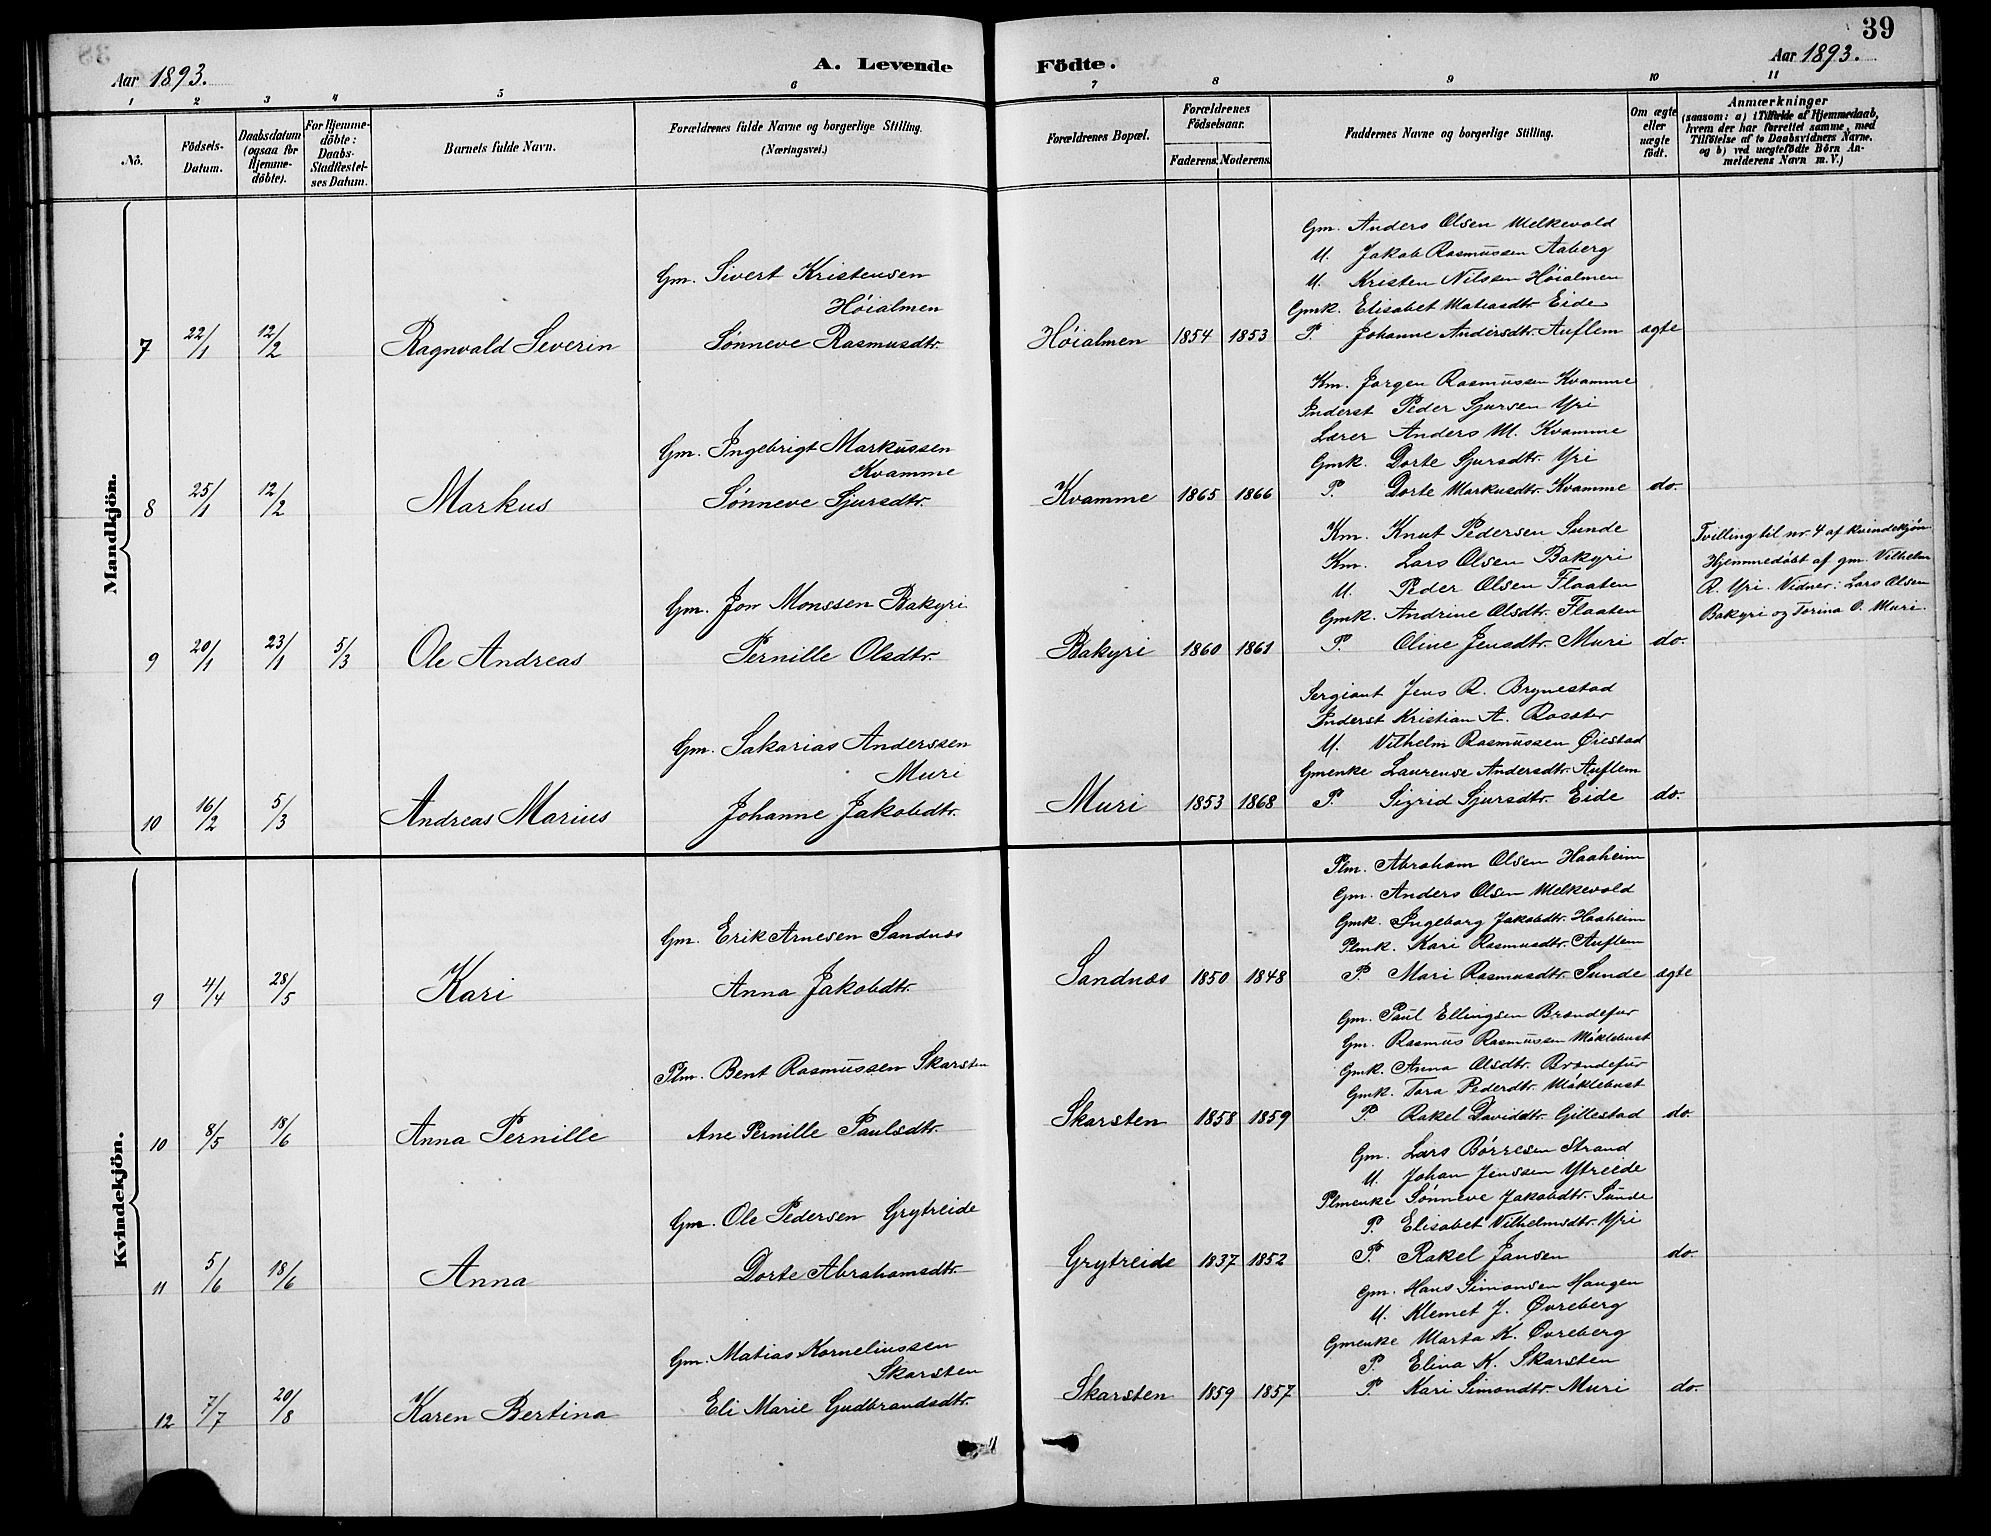 39
Aar 1893.
A. Levende Födte.
Aar 1893.
1 2 3 4 5 6 7 8 9 10 11
No.
Födsels-Datum.
Daabsdatum (ogsaa for Hjemme-döbte).
For Hjemme-döbte: Daabs-Stadfestel-ses Datum.
Barnets fulde Navn.
Forældrenes fulde Navne og borgerlige Stilling. (Næringsvei.)
Forældrenes Bopæl.
Forældrenes Födselsaar.
Faderens. Moderens.
Faddernes Navne og borgerlige Stilling.
Om ægte eller uægte født.
Anmærkninger
(saasom: a) i Tilfælde af Hjemmedaab, hvem der har forrettet samme, med Tilföielse af to Daabsvidners Navne. og b) ved uægtefödte Börn An-melderens Navn m. V.)
Mandkjön.
Gm. Anders Olsen Melkevold
U. Jakob Rasmussen Aaberg
Gm. Sivert Kristensen
U. Kristen Nilssen Höialmen
Höialmen
Gmk. Elisabet Matiasdtr. Eide
7 22/1 12/2 Ragnvald Severin Sönneve Rasmusdtr. Höialmen 1854 1853 P. Johanne Andersdtr. Auflem ægte
Km. Jörgen Rasmussen Kvamme
Inderst Peder Sjursen Yri
Lærer Anders M. Kvamme
Gm. Ingebrigt Markussen
Kvamme
Gmk. Dorte Sjursdtr. Yri
8 25/1 12/2 Markus Sönneve Sjursdtr. Kvamme 1865 1866 P. Dorte Markusdtr. Kvamme do.
Km. Knut Pedersen Sunde
Tvilling til nr. 4 af kvindekjön.
Km. Lars Olsen Bakyri
Hjemmedöbt af gm. Vilhelm
U. Peder Olsen Flaaten
R. Yri. Vidner: Lars Olsen
Gm. Jon Monssen Bakyri
Gmk. Andrine Olsdtr. Flaaten
Bakyri og Torina O. Muri.
9 20/1 23/1 5/3 Ole Andreas Pernille Olsdtr. Bakyri 1860 1861 P. Oline Jensdtr. Muri do.
Sergiant Jens R. Brynestad
Inderst Kristian A.
U. Vilhelm Rasmussen Örestad
Gm. Sakarias Anderssen
Muri
Gmenke Laurense Andersdtr. Auflem
10 16/2 5/3 Andreas Marius Johanne Jakobdtr. Muri 1853 1868 P. Sigrid Sjursdtr. Eide do.
Kvindekjön.
Plm. Abraham Olsen Haaheim
Gm. Anders Olsen Melkevold
Gmk. Ingeborg Jakobdtr. Haaheim
Gm. Erik Arnesen Sandnæs
Plmk. Kari Rasmusdtr. Auflem
9 4/4 28/5 Kari Anna Jakobdtr. Sandnæs 1850 1848 P. Mari Rasmusdtr. Sunde ægte
Gm. Paul Ellingsen Brændefur
Gm. Rasmus Rasmussen Möklebust
Gmk. Anna Olsdtr. Brændefur
Plm. Bent Rasmussen Skarsten
Gmk. Tora Pederdtr. Möklebust
10 8/5 18/6 Anna Pernille Ane Pernille Paulsdtr. Skarsten 1858 1859 P. Rakel Daviddtr. Gillestad do.
Gm. Lars Börresen Strand
U. Johan Jenssen Ytreeide
Plmenke Sönneve Jakobdtr. Sunde
Gm. Ole Pedersen Grytreide
P. Elisabet Vilhelmsdtr. Yri
11 5/6 18/6 Anna Dorte Abrahamsdtr. Grytreide 1837 1852 P. Rakel Jansen do.
Gm. Hans Simonsen Haugen
U. Klemet J. Övreberg
Gmenke Marta K. Övreberg
Gm. Matias Korneliussen
Skarsten
P. Elina K. Skarsten
12 7/7 20/8 Karen Bertina Eli Marie Gudbrandsdtr. Skarsten 1859 1857 P. Kari Simondtr. Muri do.